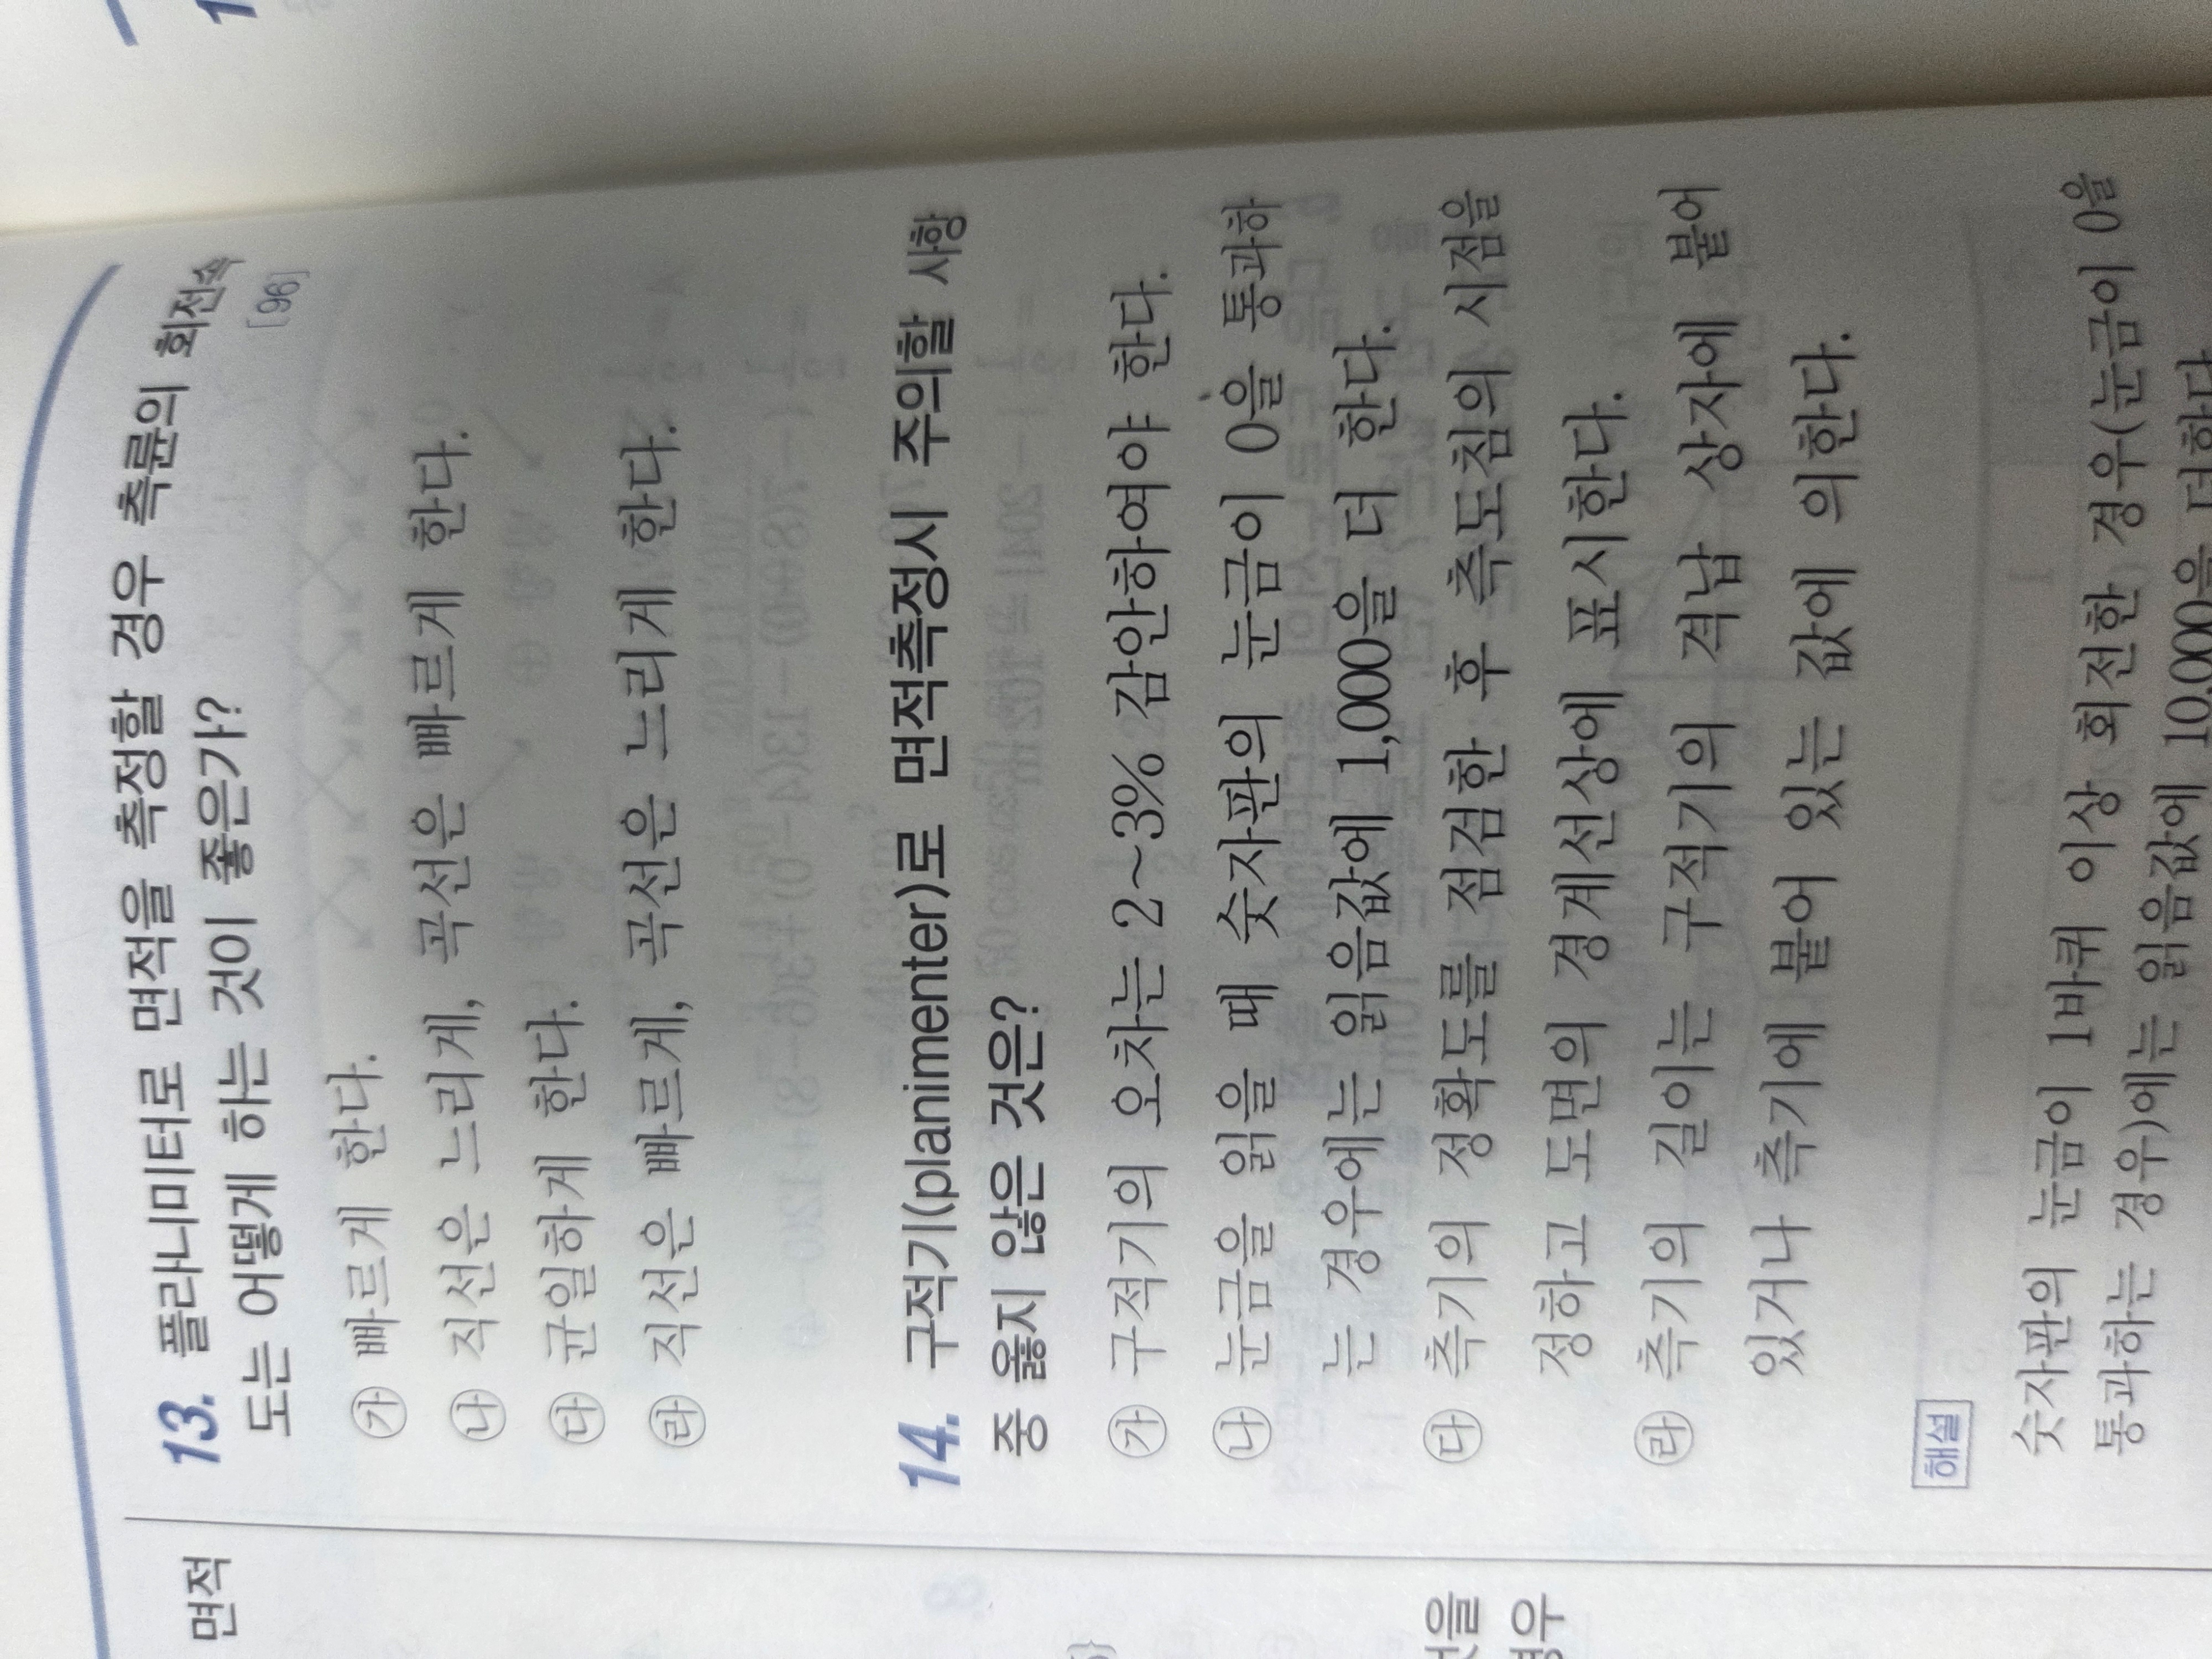 면적
13. 플라니미터로 면적을 측정할 경우 측륜의 회전속
도는 어떻게 하는 것이 좋은가? [96]
㉮ 빠르게 한다.
㉯ 직선은 느리게, 곡선은 빠르게 한다.
㉰ 균일하게 한다.
㉱ 직선은 빠르게, 곡선은 느리게 한다.
14. 구적기(planimenter)로 면적측정시 주의할 사항
중 옳지 않은 것은?
㉮ 구적기의 오차는 2~3% 감안하여야 한다.
㉯ 눈금을 읽을 때 숫자판의 눈금이 0을 통과하
는 경우에는 읽음값에 1,000을 더 한다.
㉰ 측기의 정확도를 점검한 후 측도침의 시점을
정하고 도면의 경계선상에 표시한다.
㉱ 측기의 길이는 구적기의 격납 상자에 붙어
있거나 측기에 붙어 있는 값에 의한다.
해설
숫자판의 눈금이 1바퀴 이상 회전한 경우(눈금이 0을
통과하는 경우)에는 읽음값에 10,000을 더한다